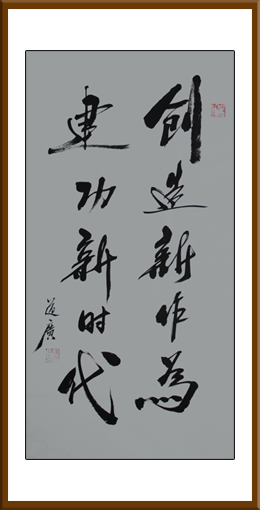 创造新作为
建功新时代
道广